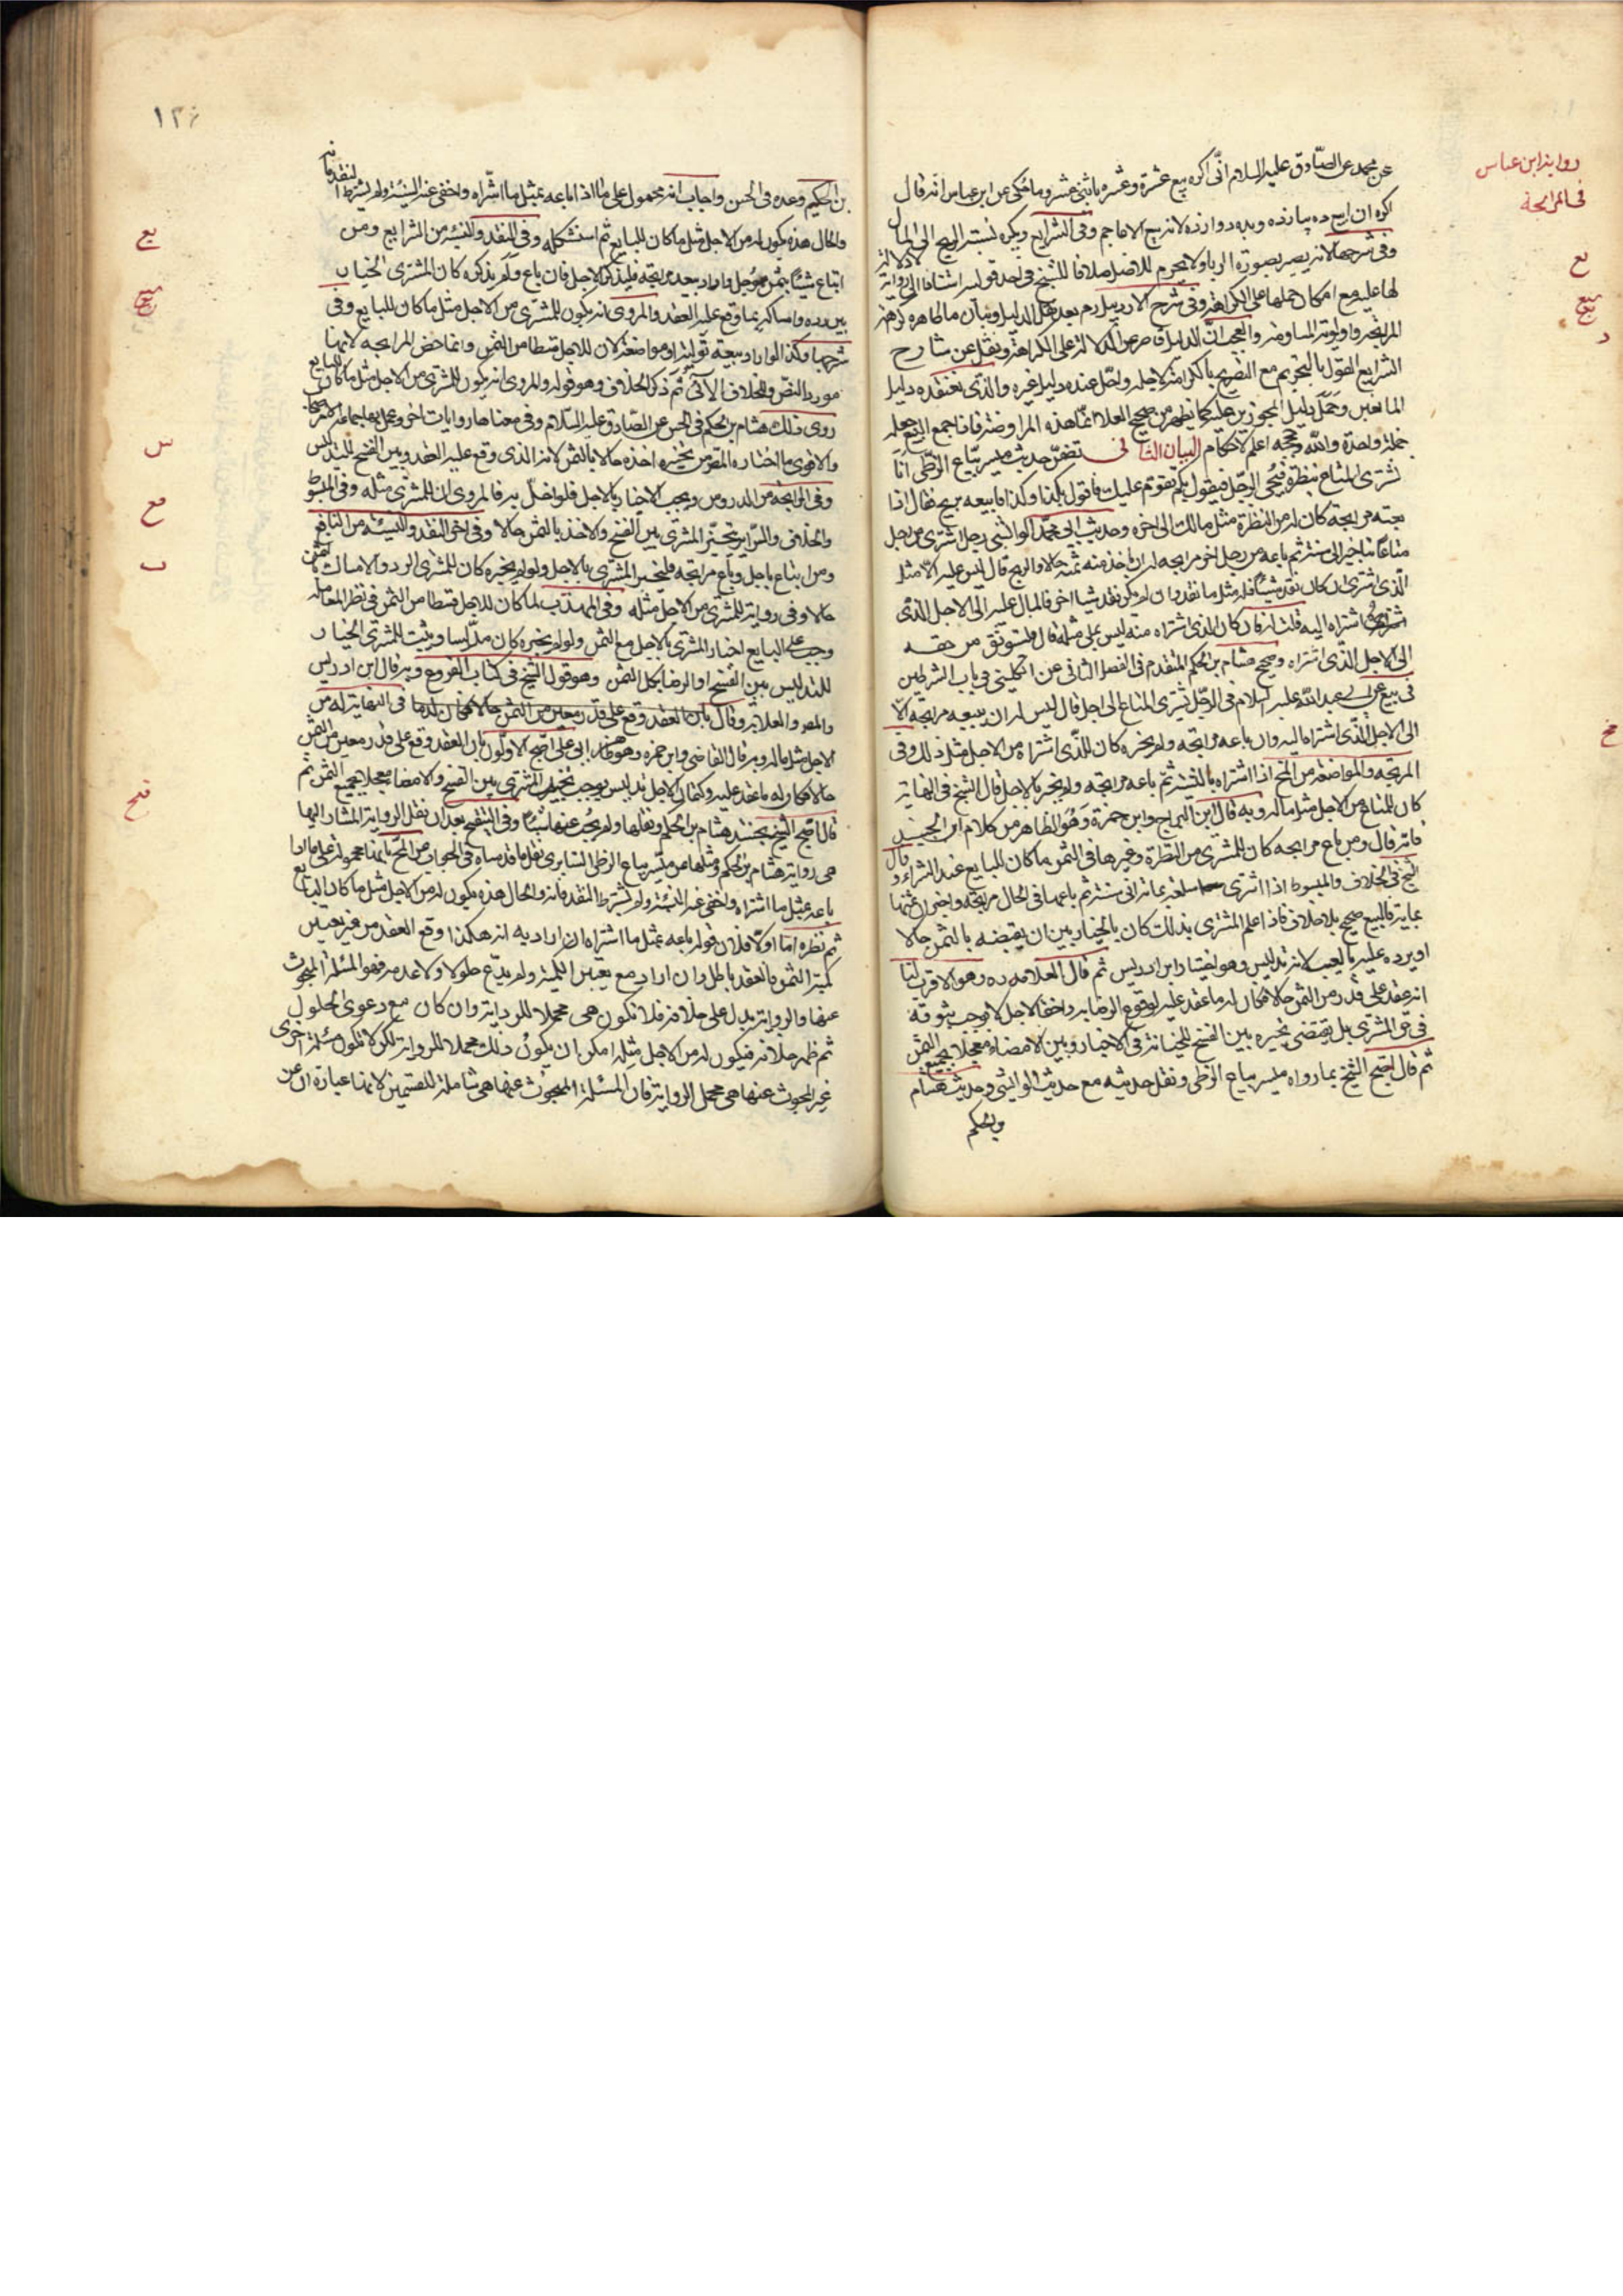 رواية ابن عباس
في المرابحة
عن محمد عن الصادق عليه السلام انى اكره بيع عشرة وعشره باثنى عشر وما حكى عن ابن عباس انه قال
اكره ان ابيع ده يازده وبده دوازده لانه بيع الاعاجم وفى الشرايع ويكره نسبة الربح الى المال
وفى شرحها لانه يصير بصورة الربا ولا يحرم للاصل خلافا للشيخ فى احد قوليه استنادا الى رواية لا دلالة
لها عليه مع امكان حملها على الكراهة وفى شرح الاردبيلى ره بعد نقل الدليل وبيان ما ظاهره كراهة
المرابحة واولوية المساومة والعجب ان الدليل قاصر عن الدلالة على الكراهة ونقل عن شارح
الشرايع القول بالتحريم مع التصريح بالكراهة لاجله ولعل عنده دليل غيره والذى نعتقده دليل
جملة واحدة والله وحججه اعلم لاحكام البيان الثانى تضمن حديث ميسر بياع الزطى انا
نشترى المتاع بنظرة فيجئ الرجل فيقول بكم تقوم عليك فاقول بكذا وكذا فابيعه بربح فقال اذا
بعته مرابحة كان له من النظرة مثل مالك الى اخره وحديث ابى محمد الوابشى رجل اشترى من رجل
متاعا بتاخير الى سنة ثم باعه من رجل اخر مرابحة له ان ياخذ منه ثمنه حالا والربح قال ليس عليه الا مثل
الذى اشترى ان كان نقد شيئا فله مثل ما نقد وان لم يكن نقد شيئا اخر فالمال عليه الى الاجل الذى
اشتراه اليه قلت له فان كان الذى اشتراه منه ليس بملى مثله قال فليستوثق من حقه
الى الاجل الذى اشتراه وصحيح هشام بن الحكم المتقدم فى الفصل الثانى عن الكلينى فى باب الشرطين
فى بيع عن ابى عبد الله عليه السلام فى الرجل يشترى المتاع الى اجل قال ليس له ان يبيعه مرابحة الا
الى الاجل الذى اشتراه اليه وان باعه مرابحة ولم يخبره كان للذى اشتراه من الاجل مثل ذلك وفى
المرابحة والمواضعة من المخ اذا اشتراه بالنسيئة ثم باعه مرابحة ولم يخبر بالاجل قال الشيخ فى النهاية
كان للمبتاع من الاجل مثل ماله وبه قال ابن البراج وابن حمزة وهو الظاهر من كلام ابن الجنيد
فانه قال ومن باع مرابحة كان للمشترى من النظرة وغيرها فى الثمن ما كان للبايع عند الشراء وقال
الشيخ فى الخلاف والمبسوط اذا اشترى سلعة بمائة الى سنة ثم باعها فى الحال مرابحة واخبر ان ثمنها
بماية فالبيع صحيح بلا خلاف فاذا علم المشترى بذلك كان بالخيار بين ان يقبضه بالثمن حالا
او يرده عليه بالعيب لانه تدليس وهو اختيار ابن ادريس ثم قال العلامه ره وهو الاقرب لنا
انه عقد على قدر من الثمن حالا فكان له ما عقد عليه لوقوع الرضا به واخفاء الاجل لا يوجب ثبوته
فى حق المشترى بل يقتضى تخيره بين الفسخ للخيانة فى الاخبار وبين الامضاء معجلا بجميع الثمن
ثم قال احتج الشيخ بما رواه ميسر بياع الزطى ونقل حديثه مع حديث الوابشى وحديث هشام
بن الحكم وعده فى الحسن واجاب انه محمول على ما اذا باعه بمثل ما اشتراه واخفى عنه النسيئة ولم يشترط النقد فانه
والحال هذه يكون له من الاجل مثل ما كان للبايع ثم استشكله وفى النقد والنسيئه من الشرايع ومن
ابتاع شيئا بثمن مؤجل واراد بيعه مرابحة فليذكر الاجل فان باع ولم يذكره كان المشترى بالخيار
بين رده وامساكه بما وقع عليه العقد والمروى انه يكون للمشترى من الاجل مثل ما كان للبايع وفى
شرحها وكذا لو اراد بيعه تولية او مواضعة لان للاجل قسطا من الثمن وانما خص المرابحه لانها
مورد النص والخلاف الآتى ثم ذكر الخلاف وهو قوله والمروى انه يكون للمشترى من الاجل مثل ما كان للبايع
روى ذلك هشام بن الحكم فى الحسن عن الصادق عليه السلام وفى معناها روايات اخر وعمل بها جماعة
والاقوى ما اختاره المص من تخيره اخذه حالا بالثمن لانه الذى وقع عليه العقد وبين الفسخ للتدليس
وفى المرابحة من الدروس ويجب الاخبار بالاجل فلو اخل به فالمروى ان للمشترى مثله وفى المبسوط
والخلاف والسراير يتخير المشترى بين الفسخ والاخذ بالثمن حالا وفى النقد والنسيئه من النافع
ومن ابتاع باجل وباع مرابحة فليخبر المشترى بالاجل ولو لم يخبره كان للمشترى الرد والامساك بالثمن
حالا وفى رواية للمشترى من الاجل مثله وفى المهذب لما كان للاجل قسطا من الثمن فى نظر المعاملة
وجب على البايع اخبار المشترى بالاجل مع الثمن ولو لم يخبره كان مدلسا ويثبت للمشترى الخيار
للتدليس بين الفسخ او الرضا بكل الثمن وهو قول الشيخ فى كتاب الفروع وبه قال ابن ادريس
والمصر والعلامة وقال بان العقد وقع على قدر معين من الثمن حالا فكان له ما فى النهاية له من
الاجل مثل ماله وبه قال القاضى وابن حمزه وهو ظاهر ابى على احتج الاولون بان العقد وقع على قدر معين من الثمن
حالا فكان له ما عقد عليه وكتمان الاجل تدليس يوجب تخيير المشترى بين الفسخ والامضا معجلا بجميع الثمن ثم
قال احتج الشيخ بحسنة هشام بن الحكم ونقلها ولم يجب عنها بشئ وفى التنقيح بعد ان نقل الرواية المشار اليها
هى رواية هشام بن الحكم ومثلها عن ميسر بياع الزطى السابورى نقل ما قدمناه فى الجواب من المخ بانها محموله على ما اذا
باعه بمثل ما اشتراه واخفى عنه النسيئة ولم يشترط النقد فانه والحال هذه يكون له من الاجل مثل ما كان للبايع
ثم نظره اما اولا فلان قوله باعه بمثل ما اشتراه ان اراد به انه هكذا وقع العقد من غير تعيين
كمية الثمن فالعقد باطل وان اراد مع تعيين الكمية ولم يدع حلولا ولا عدمه فهو المسئلة المبحوث
عنها والرواية تدل على خلافه فلا تكون هى محملا للرواية وان كان مع دعوى الحلول
ثم ظهر خلافه فيكون له من الاجل مثله امكن ان يكون ذلك محملا للرواية لكن لا تكون مسئلة اخرى
غير المبحوث عنها هى محمل الرواية فان المسئلة المبحوث عنها هى شاملة للقسمين لانها عبارة عن